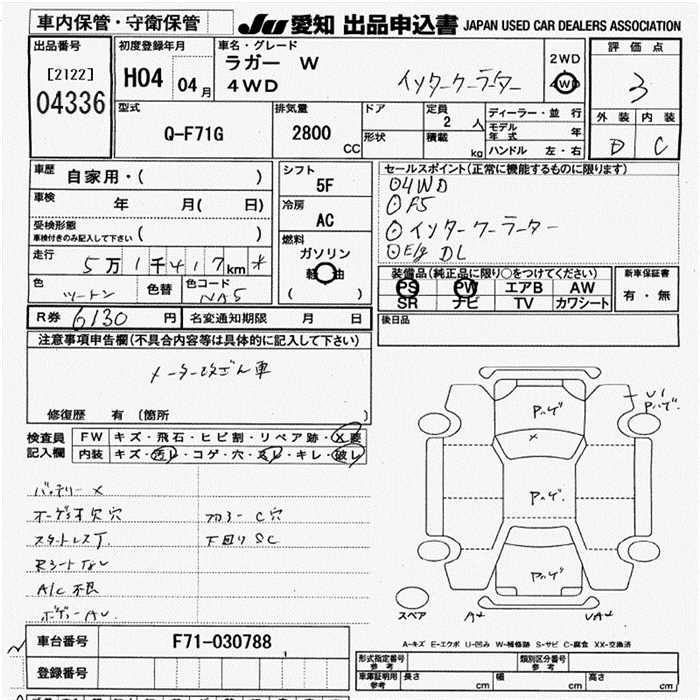 車内保管・守衛保管
JU 愛知 出品申込書 JAPAN USED CAR DEALERS ASSOCIATION
出品番号
[2122]
04336
初度登録年月
H04 04月
車名・グレード
ラガー W
4WD
インタークーラー
2WD
4WD
評価点
3
外装 内装
D C
型式
Q-F71G
排気量
2800 CC
ドア
形状
定員
2 人
積載 kg
ディーラー・並行
モデル年式 年
ハンドル 左・右
車歴 自家用・( )
車検 年 月( 日)
受検形態
車検付きのみ記入して下さい ( )
走行 5万1千417km *
色 ツートン 色替 色コード NA5
シフト
5F
冷房
AC
燃料
ガソリン
軽油
( )
セールスポイント(正常に機能するものに限ります)
○4WD
○F5
○インタークーラー
○E/g DL
装備品(純正品に限り○をつけてください)
PS PW エアB AW
SR ナビ TV カワシート
新車保証書
有・無
R券 6130 円 名変通知期限 月 日
後日品
注意事項申告欄(不具合内容等は具体的に記入して下さい)
メーター改ざん車
修復歴 有 (箇所 )
検査員記入欄
FW キズ・飛石・ヒビ割・リペア跡・X要
内装 キズ・汚れ・コゲ・穴・反し・キレ・破レ
バッテリーX
フロアーC穴
下回りSC
A/C不良
ボデーAU
Pハゲ
U1
Pハゲ
X
Pハゲ.
Pハゲ
スペア
A-キズ E-エクボ U-凹み W-補修跡 S-サビ C-腐食 XX-交換済
車台番号 F71-030788
登録番号
形式指定番号 参考 類別区分番号 参考
車庫証明用 参考 長さ cm 幅 cm 高さ cm